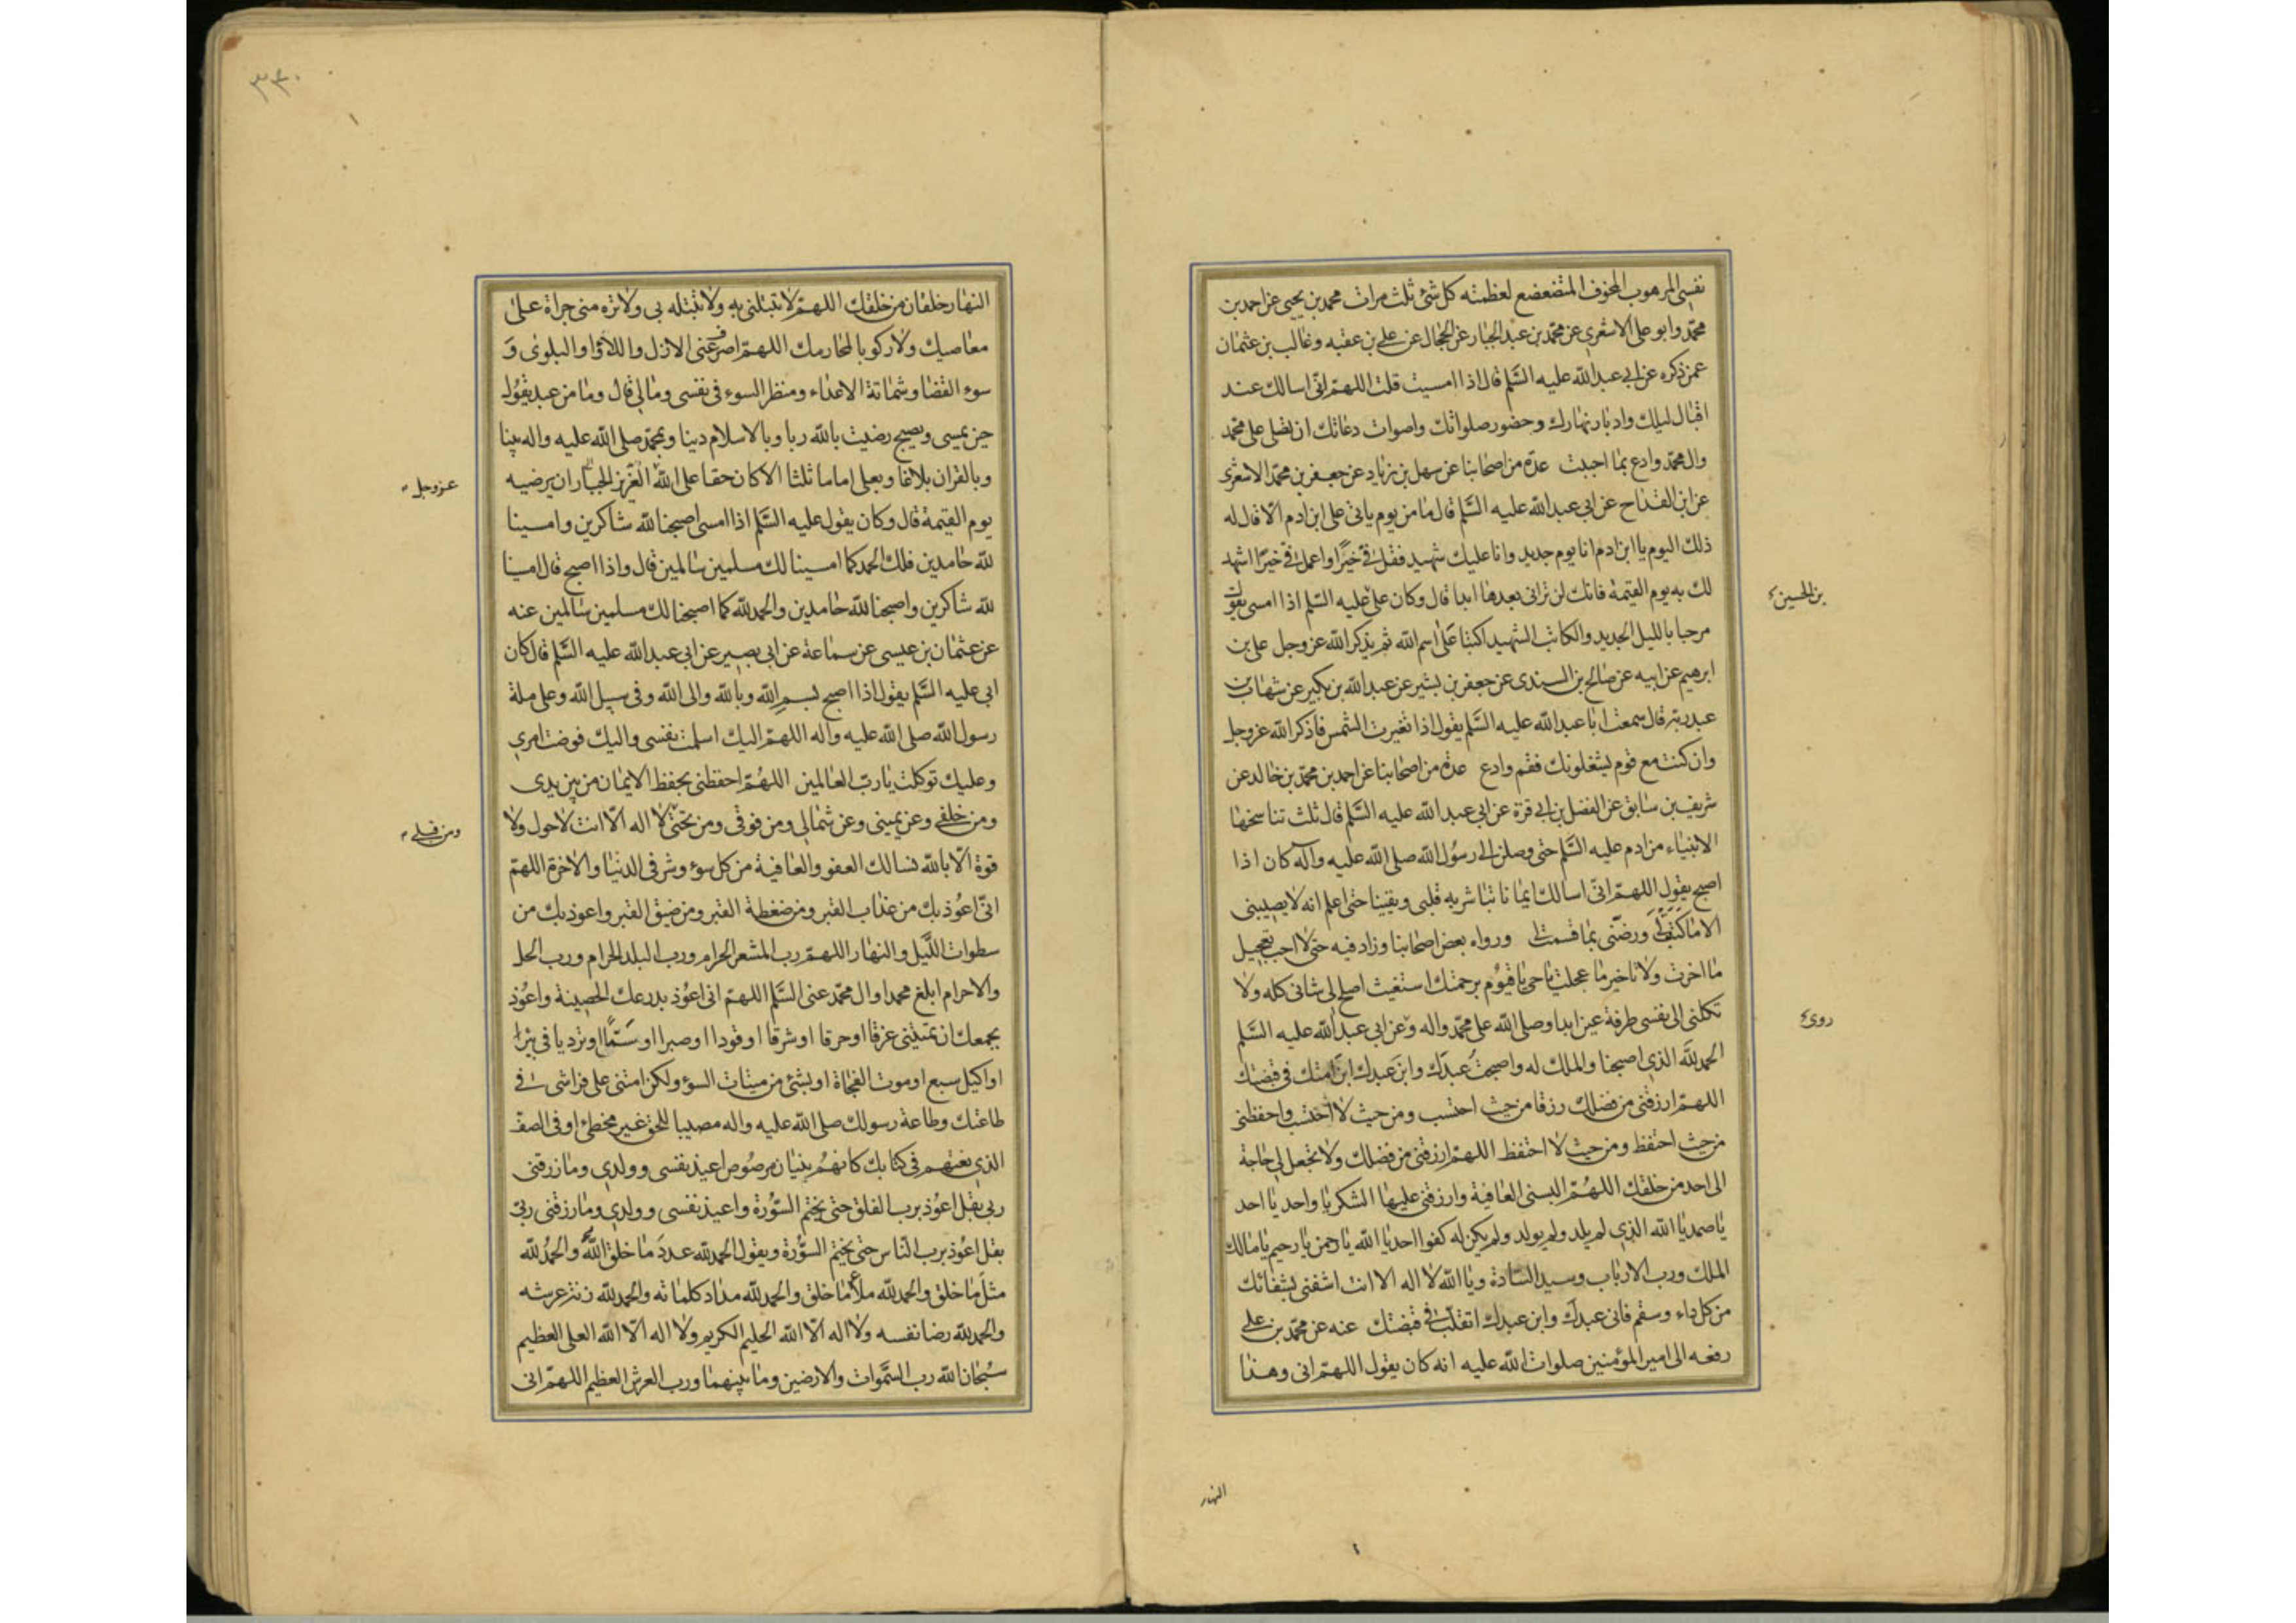 نفسى المرهوب المخوف المتضعضع لعظمته كل شئ ثلث مرات محمد بن يحيى عن احمد بن
محمد وابو على الاشعرى عن محمد بن عبد الجبار عن الحجال عن على بن عقبه وغالب بن عثمان
عمن ذكره عن ابى عبد الله عليه السلم قال اذا امسيت قلت اللهم انى اسالك عند
اقبال ليلك وادبار نهارك وحضور صلواتك واصوات دعاتك ان تصلى على محمد
وال محمد وادع بما احببت عدة من اصحابنا عن سهل بن زياد عن جعفر بن محمد الاشعرى
عن ابن القداح عن ابى عبد الله عليه السلم قال ما من يوم ياتى على ابن ادم الا قال له
ذلك اليوم يا ابن ادم انا يوم جديد وانا عليك شهيد فقل فى خيرا واعمل فى خيرا اشهد
لك به يوم القيمة فانك لن ترانى بعدها ابدا قال وكان على عليه السلم اذا امسى يقول
بن الحسين
مرحبا بالليل الجديد والكاتب الشهيد اكتبا على اسم الله ثم يذكر الله عز وجل على بن
ابرهيم عن ابيه عن صالح بن السندى عن جعفر بن بشير عن عبد الله بن بكير عن شهاب بن
عبد ربه قال سمعت ابا عبد الله عليه السلم يقول اذا تغيرت الشمس فاذكر الله عز وجل
وان كنت مع قوم يشغلونك فقم وادع عدة من اصحابنا عن احمد بن محمد بن خالد عن
شريف بن سابق عن الفضل بن ابى قرة عن ابى عبد الله عليه السلم قال ثلث تناسخها
الانبياء من ادم عليه السلم حتى وصلن الى رسول الله صلى الله عليه وآله كان اذا
اصبح يقول اللهم انى اسالك ايمانا تباشر به قلبى ويقينا حتى اعلم انه لا يصيبنى
الا ما كتبت لى ورضنى بما قسمت لى ورواه بعض اصحابنا وزاد فيه حتى لا احب تعجيل
ما اخرت ولا تاخير ما عجلت يا حى يا قيوم برحمتك استغيث اصلح لى شانى كله ولا
تكلنى الى نفسى طرفة عين ابدا وصلى الله على محمد واله وعن ابى عبد الله عليه السلم
روى
الحمد لله الذى اصبحنا والملك له واصبحت عبدك وابن عبدك ابن امتك فى قبضتك
اللهم ارزقنى من فضلك رزقا من حيث احتسب ومن حيث لا احتسب واحفظنى
من حيث احتفظ ومن حيث لا احتفظ اللهم ارزقنى من فضلك ولا تجعل لى حاجة
الى احد من خلقك اللهم البسنى العافية وارزقنى عليها الشكر يا واحد يا احد
يا صمد يا الله الذى لم يلد ولم يولد ولم يكن له كفوا احد يا الله يا رحمن يا رحيم يا مالك
الملك ورب الارباب وسيد السادة ويا الله لا اله الا انت اشفنى بشفائك
من كل داء وسقم فانى عبدك وابن عبدك اتقلب فى قبضتك عنه عن محمد بن على
رفعه الى امير المؤمنين صلوات الله عليه انه كان يقول اللهم انى وهذا
النهار
٣٣٠
النهار خلقان من خلقك اللهم لا تبتلنى به ولا تبتله بى ولا تره منى جراة على
معاصيك ولا ركوبا لمحارمك اللهم اصرف عنى الازل واللاوا والبلوى و
سوء القضا وشماتة الاعداء ومنظر السوء فى نفسى ومالى قال وما من عبد يقول
حين يمسى ويصبح رضيت بالله ربا وبالاسلام دينا وبمحمد صلى الله عليه واله نبينا
وبالقران بلاغا وبعلى اماما ثلثا الا كان حقا على الله العزيز الجبار ان يرضيه
عز وجل
يوم القيمة قال وكان يقول عليه السلم اذا امسى اصبحنا لله شاكرين وامسينا
لله حامدين فلك الحمد كما امسينا لك مسلمين سالمين قال واذا اصبح قال امسينا
لله شاكرين واصبحنا لله حامدين والحمد لله كما اصبحنا لك مسلمين سالمين عنه
عن عثمان بن عيسى عن سماعة عن ابى بصير عن ابى عبد الله عليه السلم قال كان
ابى عليه السلم يقول اذا اصبح بسم الله وبالله والى الله وفى سبيل الله وعلى ملة
رسول الله صلى الله عليه واله اللهم اليك اسلمت نفسى واليك فوضت امرى
وعليك توكلت يا رب العالمين اللهم احفظنى بحفظ الايمان من بين يدى
ومن خلفى وعن يمينى وعن شمالى ومن فوقى ومن تحتى لا اله الا انت لا حول ولا
ومن قبلى
قوة الا بالله نسالك العفو والعافية من كل سوء وشر فى الدنيا والاخرة اللهم
انى اعوذ بك من عذاب القبر ومن ضغطة القبر ومن ضيق القبر واعوذ بك من
سطوات الليل والنهار اللهم رب المشعر الحرام ورب البلد الحرام ورب الحل
والاحرام ابلغ محمدا وال محمد عنى السلم اللهم انى اعوذ بدرعك الحصينة واعوذ
بجمعك ان تميتنى غرقا او حرقا او شرقا او قودا او صبرا او سما او ترديا فى بئرا
او اكيل سبع او موت الفجاة او بشئ من ميتات السوء ولكن امتنى على فراشى فى
طاعتك وطاعة رسولك صلى الله عليه واله مصيبا للحق غير مخطئ او فى الصف
الذى نعتهم فى كتابك كانهم بنيان مرصوص اعيذ نفسى وولدى وما رزقنى
ربى بقل اعوذ برب الفلق حتى يختم السورة واعيذ نفسى وولدى وما رزقنى ربى
بقل اعوذ برب الناس حتى يختم السورة ويقول الحمد لله عدد ما خلق الله والحمد لله
مثل ما خلق والحمد لله ملأ ما خلق والحمد لله مداد كلماته والحمد لله زنة عرشه
والحمد لله رضا نفسه ولا اله الا الله الحليم الكريم ولا اله الا الله العلى العظيم
سبحان الله رب السموات والارضين وما بينهما ورب العرش العظيم اللهم انى